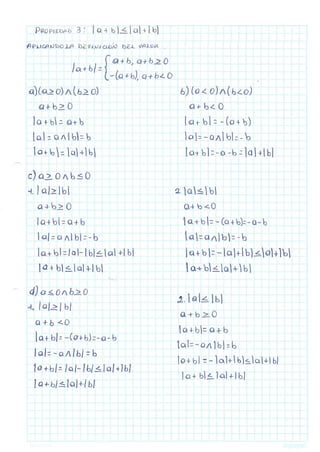 PROPIEDAD 3: |a+b|≤|a|+|b|
APLICANDO LA DEFINICIÓN DEL VALOR.
|a+b|={ a+b, a+b≥0
-(a+b), a+b<0
a)(a≥0)∧(b≥0)
a+b≥0
|a+b|=a+b
|a|=a∧|b|=b
|a+b|=|a|+|b|
b)(a<0)∧(b<0)
a+b<0
|a+b|=-(a+b)
|a|=-a∧|b|=-b
|a+b|=-a-b=|a|+|b|
c)a≥0∧b≤0
1.|a|≥|b|
a+b≥0
|a+b|=a+b
|a|=a∧|b|=-b
|a+b|=|a|-|b|≤|a|+|b|
|a+b|≤|a|+|b|
2.|a|≤|b|
a+b<0
|a+b|=-(a+b)=-a-b
|a|=a∧|b|=-b
|a+b|=-|a|+|b|≤|a|+|b|
|a+b|≤|a|+|b|
d)a≤0∧b≥0
1.|a|≥|b|
a+b<0
|a+b|=-(a+b)=-a-b
|a|=-a∧|b|=b
|a+b|=|a|-|b|≤|a|+|b|
|a+b|≤|a|+|b|
2.|a|≤|b|
a+b≥0
|a+b|=a+b
|a|=-a∧|b|=b
|a+b|=-|a|+|b|≤|a|+|b|
|a+b|≤|a|+|b|